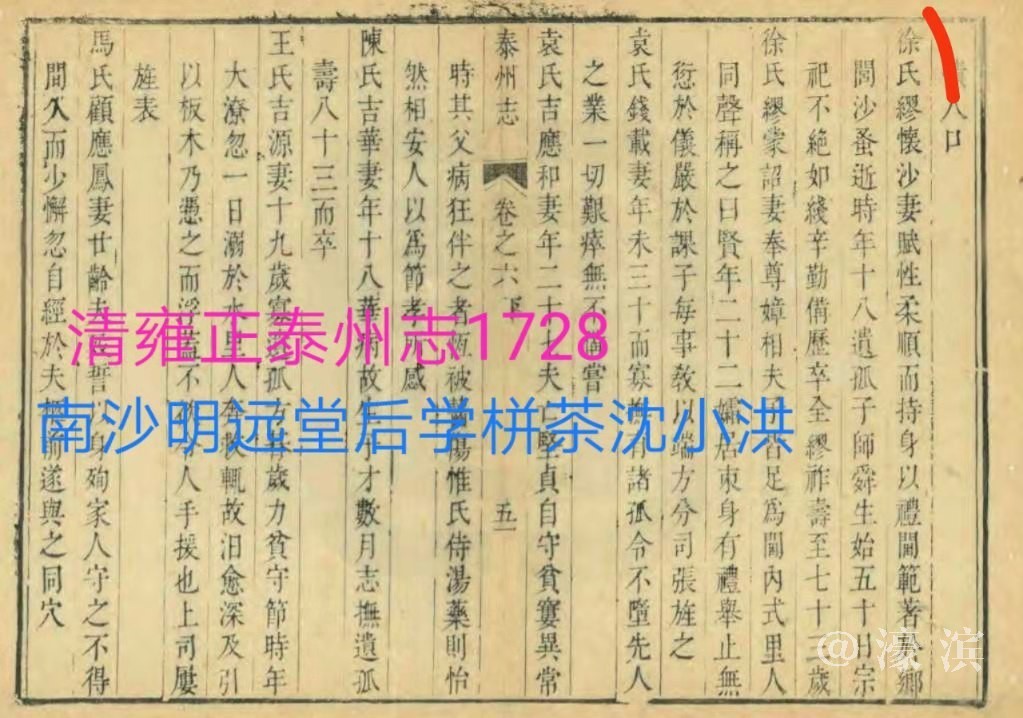 人口
徐氏繆懷沙妻賦性柔順而持身以禮閫範著鄉
間沙蚤逝時年十八遺孤子師舜生始五十日宗
祀不絶如綫辛勤備歷卒全繆祚壽至七十二歲
徐氏繆蒙詔妻奉尊嫜相夫皆足為閫內式里人
同聲稱之曰賢年二十二孀居束身有禮舉止無
愆於儀嚴於課子每事教以端方分司張旌之
袁氏錢載妻年未三十而寡撫有諸孤令不墮先人
之業一切艱瘁無不備嘗
袁氏吉應和妻年二十七夫亡堅貞自守貧窶異常
泰州志 卷之六下 五
時其父病狂伴之者恆被傷惟氏侍湯藥則怡
然相安人以為節孝所感
陳氏吉華妻年十八華病故生子才數月志撫遺孤
壽八十三而卒
王氏吉源妻十九歲寡遺孤方歲力貧守節時年
大潦忽一日溺於水里人奔救輒故汩愈深及引
以板木乃憑之而浮蓋不人手援也上司屢
旌表
馬氏顧應鳳妻廿齡夫誓以身殉家人守之不得
間久而少懈忽自經於夫柩前遂與之同穴
清雍正泰州志1728
南沙明远堂后学栟茶沈小洪
@濠滨